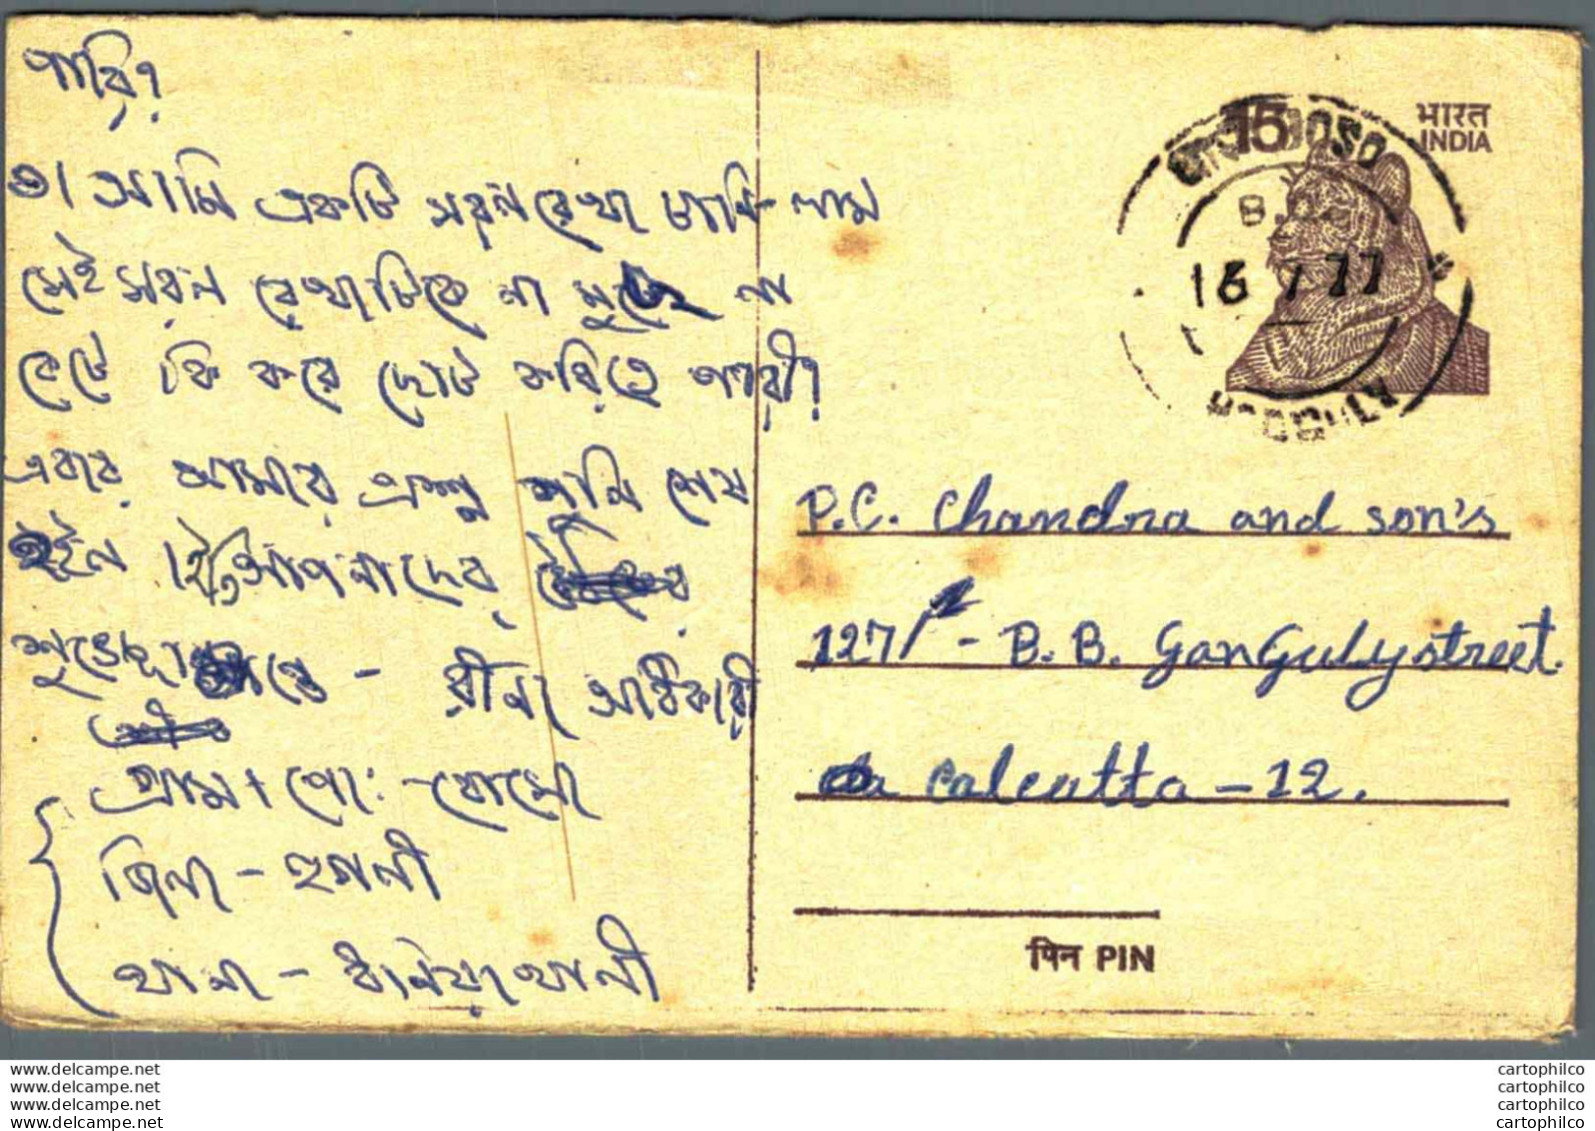 পারি?
৩। আমি একটি সরলরেখা টানি-লাম
সেই সরল রেখাটিকে না মুছে না
কেটে কি করে ছোট করিতে পারী?
এবার আমার প্রশ্ন শুনি শেষ
হইল। ইতি আপনাদের
শুভেচ্ছান্তে - রীনা অধিকারী
গ্রাম + পোঃ - বোসো
জিলা - হুগলী
থানা - ধনিয়াখালী
15
भारत
INDIA
B.O
16 77
HOOGHLY
P.C. Chandra and son's
127/ - B.B. GanGuly street.
Calcutta - 12.
पिन PIN
www.delcampe.net
www.delcampe.net
www.delcampe.net
www.delcampe.net
cartophilco
cartophilco
cartophilco
cartophilco